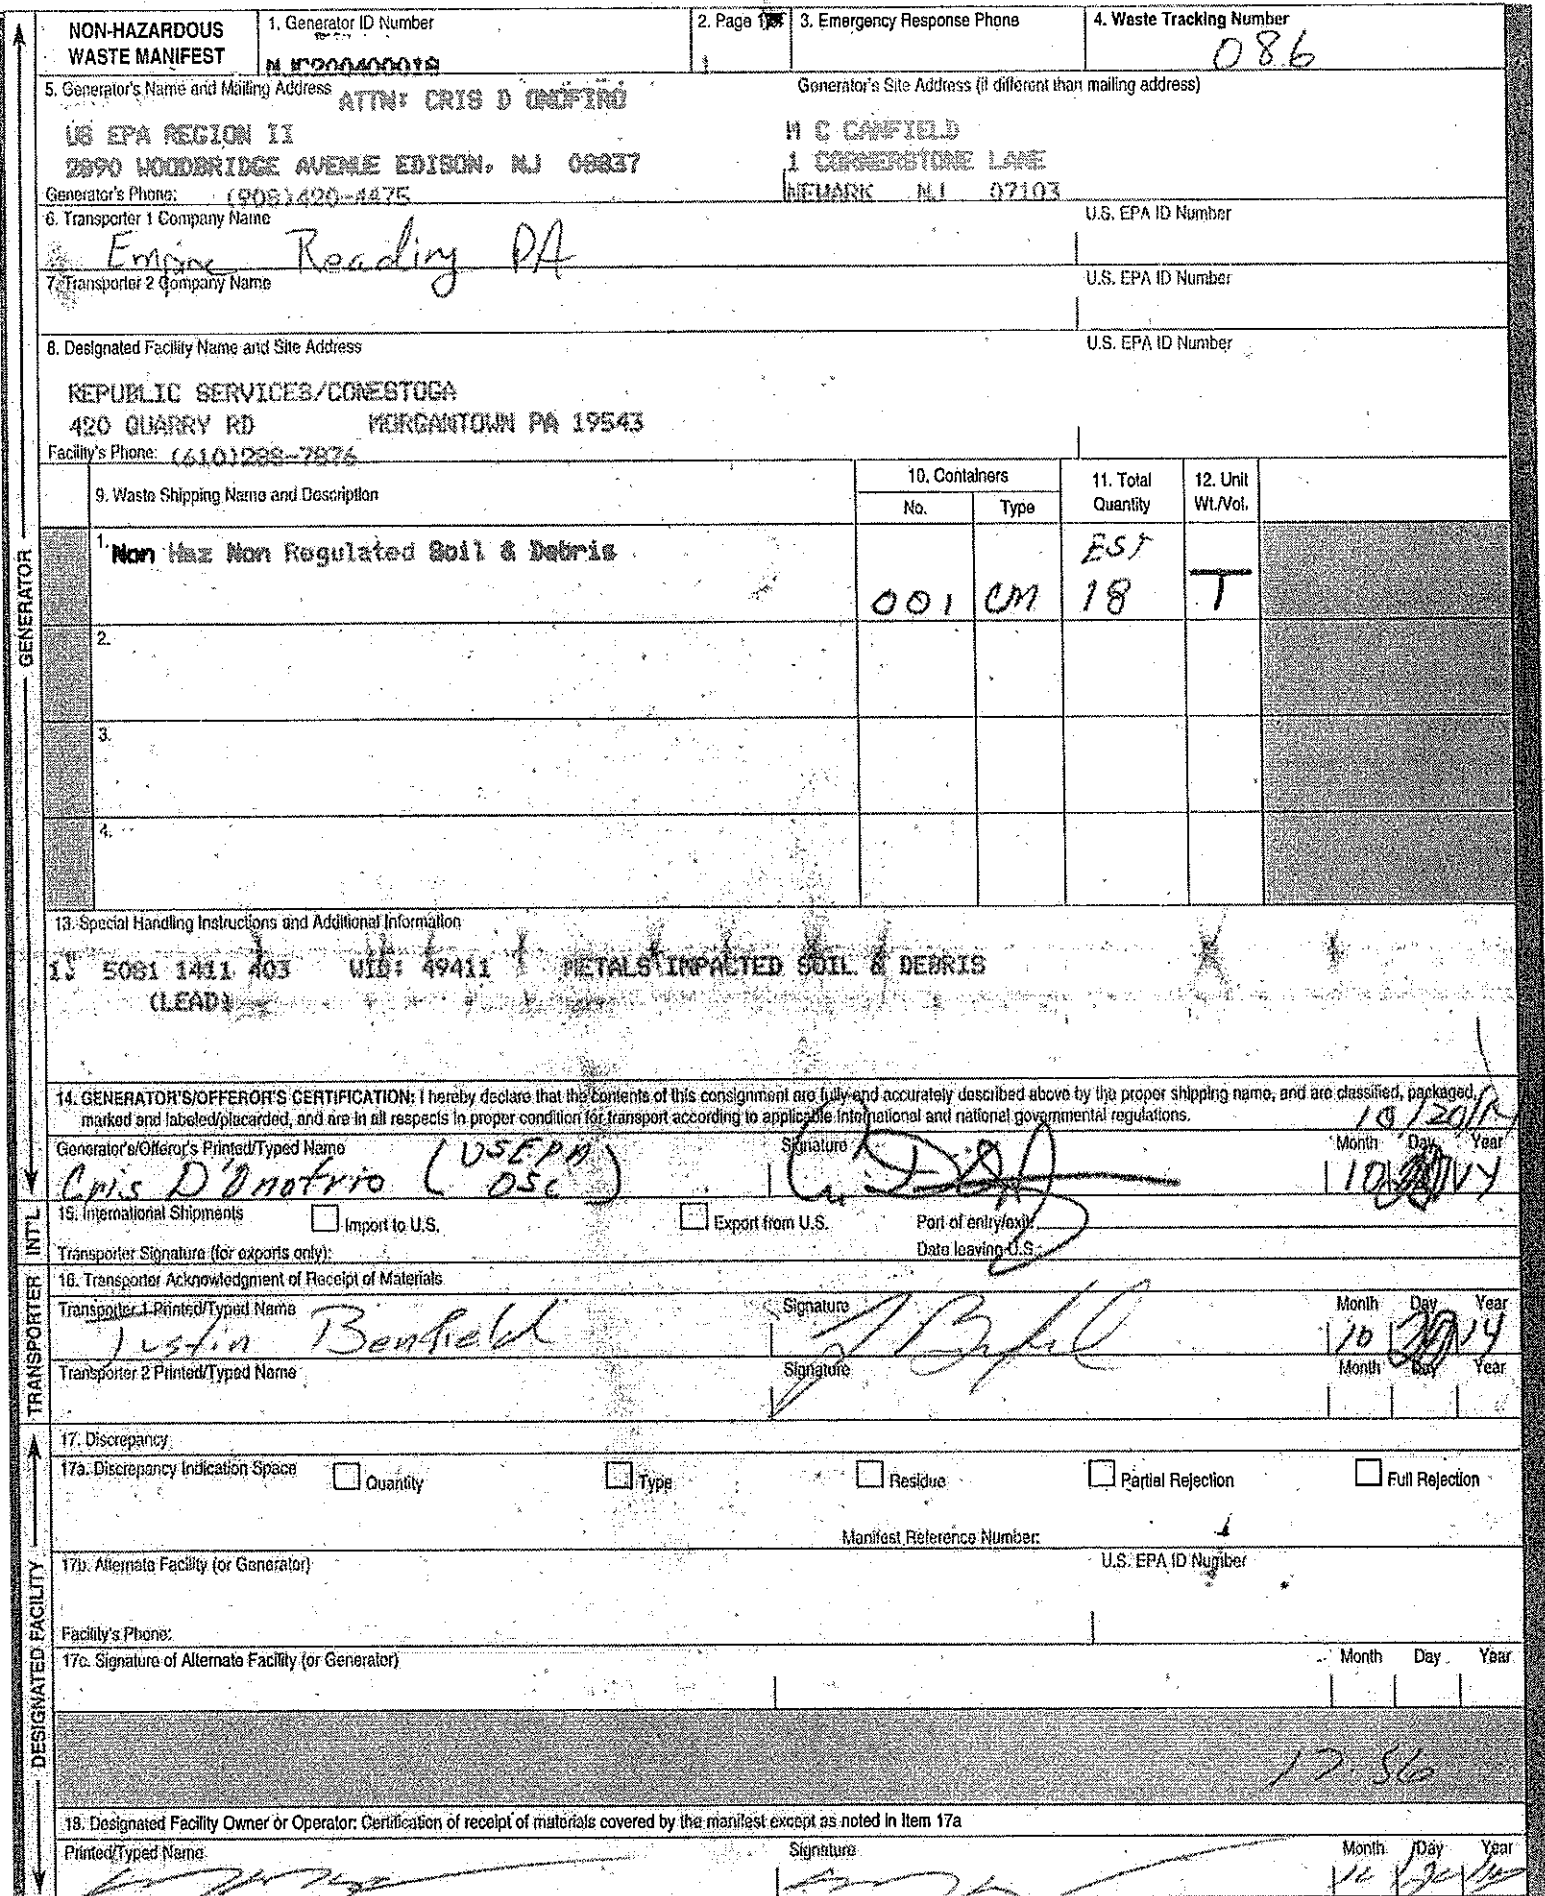 NON-HAZARDOUS WASTE MANIFEST
1. Generator ID Number
2. Page 1
1
3. Emergency Response Phone
4. Waste Tracking Number
086
5. Generator's Name and Mailing Address ATTN: CRIS D ONOFIRO
US EPA REGION II
2890 WOODBRIDGE AVENUE EDISON, NJ 08837
Generator's Phone: (908)420-4475
Generator's Site Address (if different than mailing address)
M C CANFIELD
1 CORNERSTONE LANE
NEWARK NJ 07103
6. Transporter 1 Company Name
U.S. EPA ID Number
Empire Reading PA
7. Transporter 2 Company Name
U.S. EPA ID Number
8. Designated Facility Name and Site Address
U.S. EPA ID Number
REPUBLIC SERVICES/CONESTOGA
420 QUARRY RD MORGANTOWN PA 19543
Facility's Phone: (610)286-7876
9. Waste Shipping Name and Description
10. Containers
No.
Type
11. Total Quantity
12. Unit Wt./Vol.
1. Non Haz Non Regulated Soil & Debris
001
CM
EST
18
T
2.
3.
4.
13. Special Handling Instructions and Additional Information
1. 5081 1411 403 WID: 49411 METALS IMPACTED SOIL & DEBRIS
(LEAD)
14. GENERATOR'S/OFFEROR'S CERTIFICATION: I hereby declare that the contents of this consignment are fully and accurately described above by the proper shipping name, and are classified, packaged,
marked and labeled/placarded, and are in all respects in proper condition for transport according to applicable international and national governmental regulations.
10/20/
Generator's/Offeror's Printed/Typed Name
Signature
Month Day Year
Cris D'Onofrio (USEPA OSC)
10 14
15. International Shipments
Import to U.S.
Export from U.S.
Port of entry/exit:
Transporter Signature (for exports only):
Date leaving U.S.:
16. Transporter Acknowledgment of Receipt of Materials
Transporter 1 Printed/Typed Name
Signature
Month Day Year
Justin Benfield
10 20 14
Transporter 2 Printed/Typed Name
Signature
Month Day Year
17. Discrepancy
17a. Discrepancy Indication Space
Quantity
Type
Residue
Partial Rejection
Full Rejection
Manifest Reference Number:
17b. Alternate Facility (or Generator)
U.S. EPA ID Number
Facility's Phone:
17c. Signature of Alternate Facility (or Generator)
Month Day Year
17.56
18. Designated Facility Owner or Operator: Certification of receipt of materials covered by the manifest except as noted in Item 17a
Printed/Typed Name
Signature
Month Day Year
GENERATOR
INT'L
TRANSPORTER
DESIGNATED FACILITY